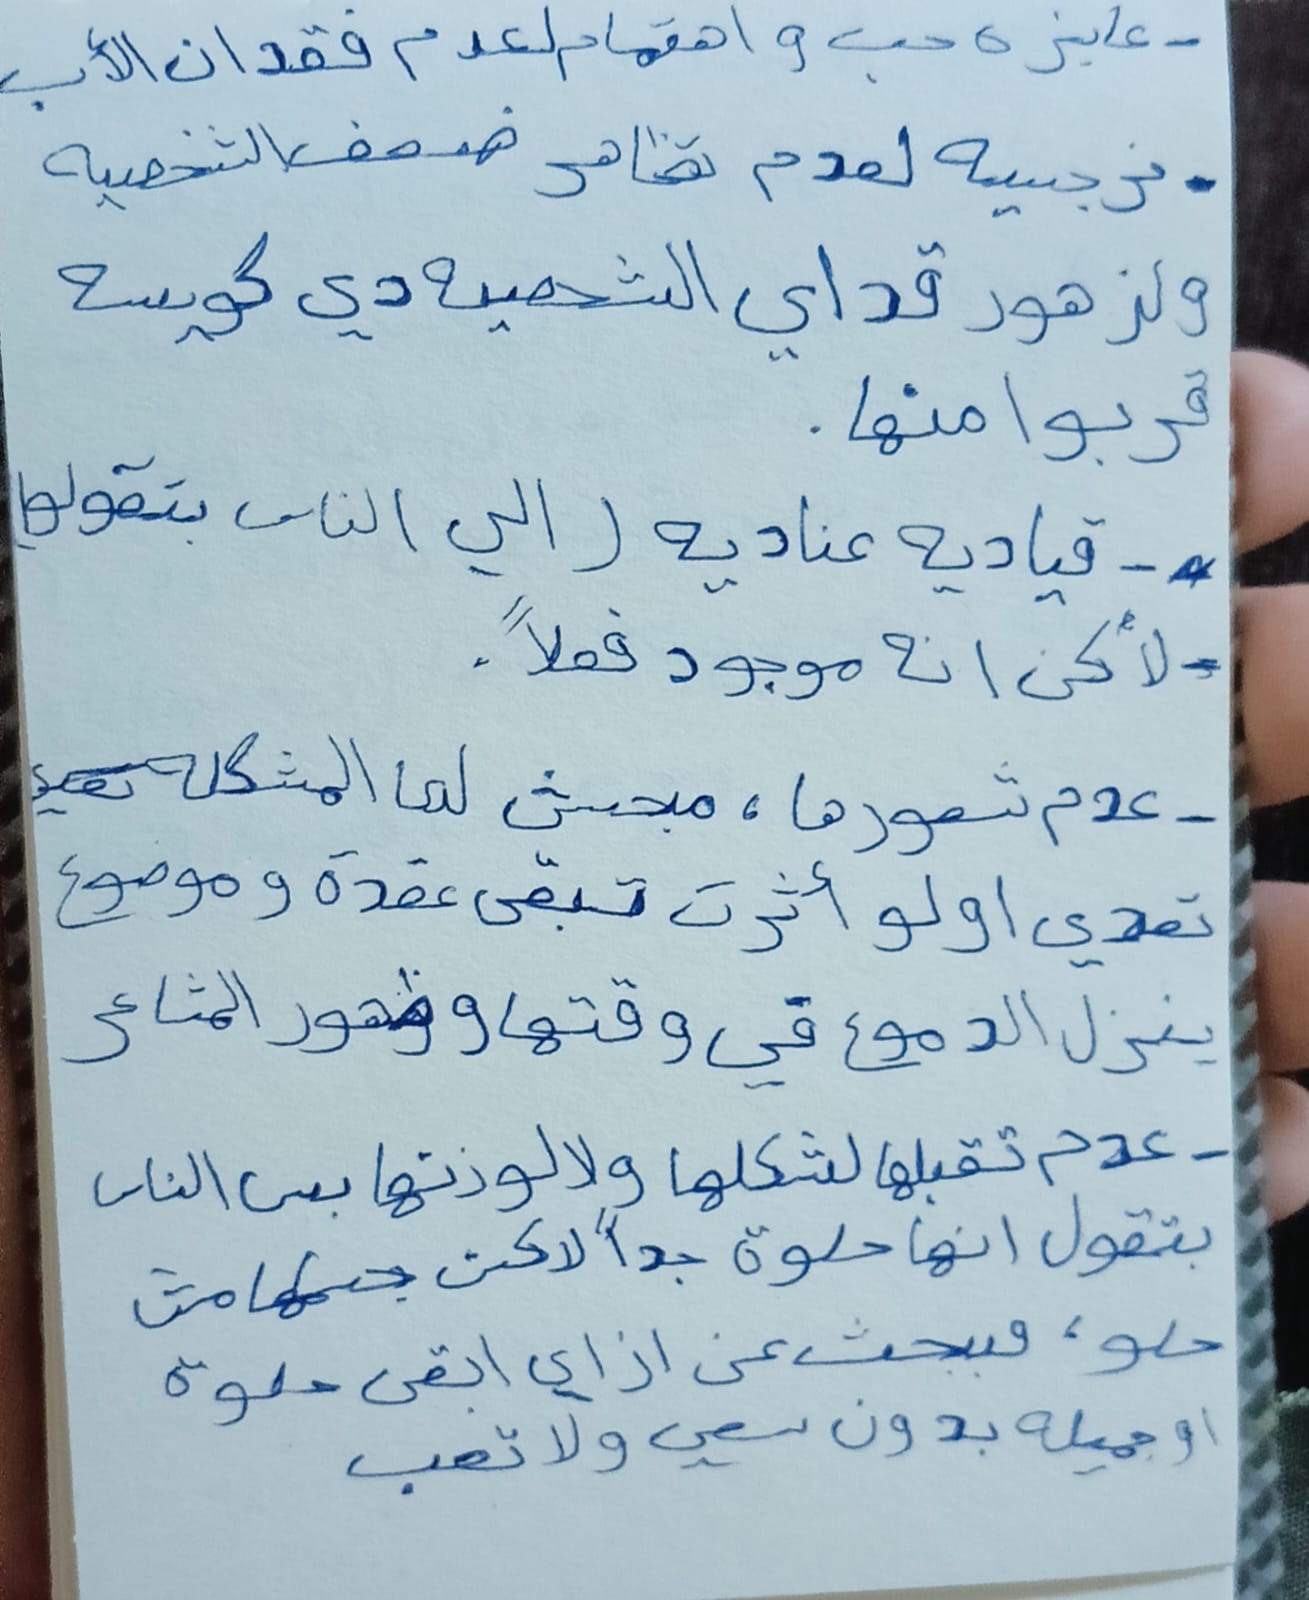 - عايزه حب و اهتمام لعدم فقدان الأب
- نرجسيه لعدم تظاهر ضعف الشخصيه
ولزهور قد اي الشخصيه دي كويسه
قربوا منها.
- قياديه عناديه ( الي الناس بتقولها
- لأكن انه موجود فعلاً.
- عدم شعورها، مبحسش لما المشكله
تعدي او لو أثرت تبقى عقدة وموضوع
ينزل الدموع في وقتها وظهور المشاعر
- عدم تقبلها لشكلها ولا لوزنها بس الناس
بتقول انها حلوة جداً لاكن جسمها مش
حلو، فبحث عن ازاي ابقى حلوة
او جميله بدون سعي ولا تعب